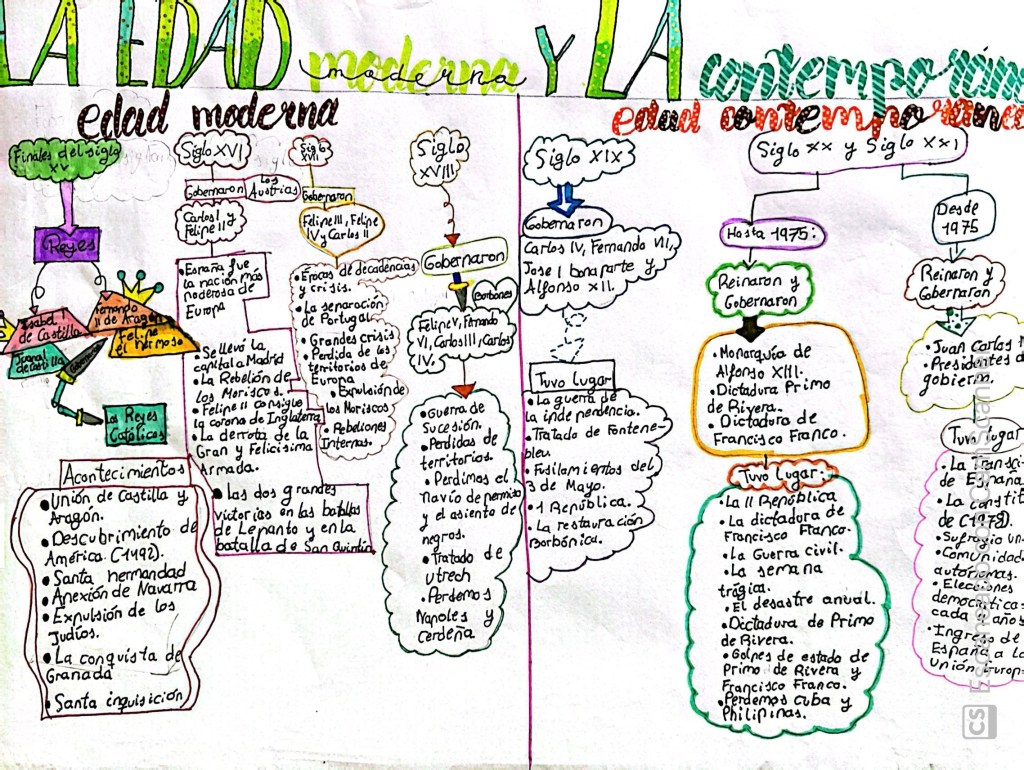 LA EDAD moderna Y LA contemporán
moderna
edad moderna
Finales del siglo
XV
Reyes
Isabel
de Castilla
Fernando
II de Aragón
Juana
de Castilla
Felipe
el hermoso
Gobernaron
Los Reyes
Católicos
Acontecimientos
• Unión de Castilla y
Aragón.
• Descubrimiento de
América. (1492).
• Santa hermandad
• Anexión de Navarra
• Expulsión de los
Judíos.
• La conquista de
Granada
• Santa inquisición
Siglo XVI
Gobernaron
Los
Austrias
Carlos I y
Felipe II
• España fue
la nación más
poderosa de
Europa
• Se llevó la
capital a Madrid
• La Rebelión de
los Moriscos.
• Felipe II consigue
la corona de Inglaterra
• La derrota de la
Gran y Felicísima
Armada.
• Las dos grandes
victorias en las batallas
de Lepanto y en la
batalla de San Quintín
Siglo
XVII
Gobernaron
Felipe III, Felipe
IV y Carlos II
• Épocas de decadencias
y crisis.
• La separación
de Portugal.
• Grandes crisis
• Perdida de los
territorios de
Europa
• Expulsión de
los Moriscos
• Rebeliones
Internas.
Siglo
XVIII
Gobernaron
Borbones
Felipe V, Fernando
VI, Carlos III, Carlos
IV.
• Guerra de
Sucesión.
• Perdidas de
territorios.
• Perdimos el
navío de permiso
y el asiento de
negros.
• Tratado de
Utrech
• Perdemos
Napoles y
Cerdeña
edad contemporánea
Siglo XIX
Gobernaron
Carlos IV, Fernando VII,
Jose I bonaparte y
Alfonso XII.
Tuvo lugar
• La guerra de
la independencia.
• Tratado de Fontene-
bleu
• Fusilamientos del
3 de Mayo.
• 1 República.
• La restauración
Borbónica.
Siglo XX y Siglo XXI
Hasta 1975:
Reinaron y
Gobernaron
• Monarquía de
Alfonso XIII.
• Dictadura Primo
de Rivera.
• Dictadura de
Francisco Franco.
Tuvo lugar:
• La II República
• La dictadura de
Francisco Franco.
• La Guerra civil.
• La semana
trágica.
• El desastre anual.
• Dictadura de Primo
de Rivera.
• Golpes de estado de
Primo de Rivera y
Francisco Franco.
• Perdemos Cuba y
Philipinas.
Desde
1975
Reinaron y
Gobernaron
• Juan Carlos
• Presidentes d
gobierno.
Tuvo lugar
• La Transici
de España
• La constit
de (1978).
• Sufragio un
• Comunidad
autónomas.
• Elecciones
democráticas
cada años
• Ingreso de
España a la
Unión Europ
CS Escaneado con CamScanner